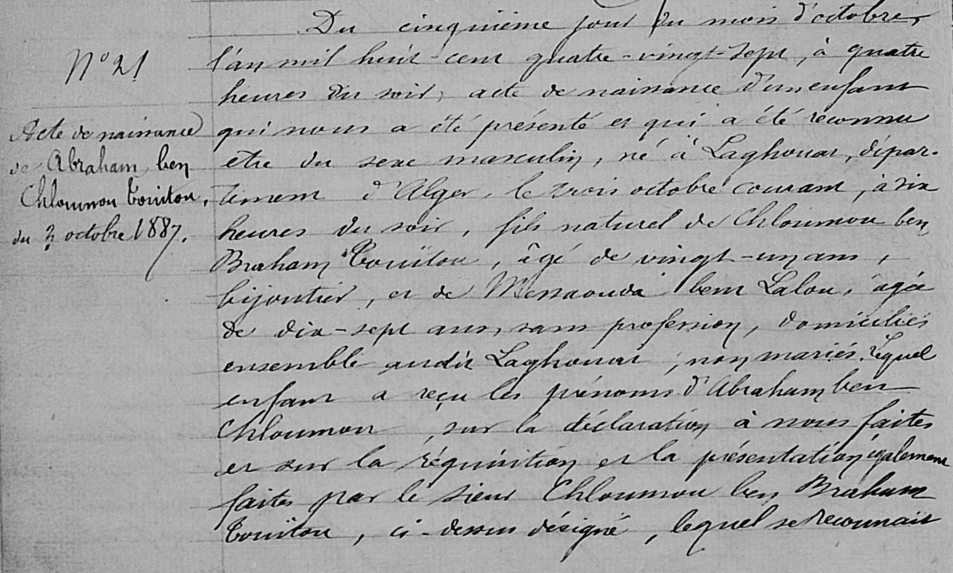 N° 21
Acte de naissance
de Abraham ben
Chloumou Touitou,
du 3 octobre 1887.
Du cinquième jour du mois d'octobre,
l'an mil huit-cent quatre-vingt-sept, à quatre
heures du soir, acte de naissance d'un enfant
qui nous a été présenté et qui a été reconnu
etre du sexe masculin, né à Laghouat, dépar-
tement d'Alger, le trois octobre courant, à dix
heures du soir, fils naturel de Chloumou ben
Braham Touïtou, âgé de vingt-un ans,
bijoutier, et de Messaouda bent Lalou, âgée
de dix-sept ans, sans profession, domiciliés
ensemble audit Laghouat, non mariés. Lequel
enfant a reçu les prénoms d'Abraham ben
Chloumou, sur la déclaration à nous faites
et sur la réquisition et la présentation également
faites par le sieur Chloumou ben Braham
Touitou, ci-dessus désigné, lequel se reconnait